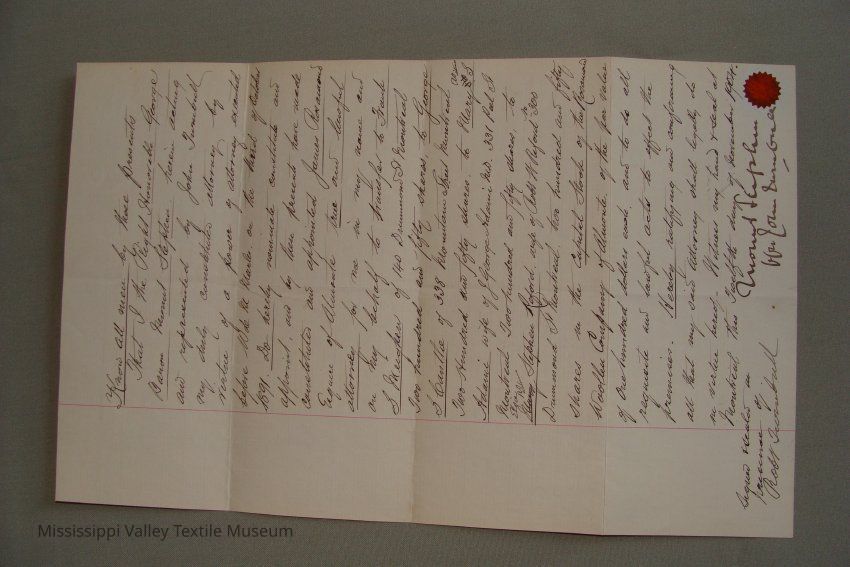 Know all men by these presents
That I the Right Honorable George
Baron Mount Stephen herein acting
and represented by John Turnbull
my duly constituted attorney by
virtue of a power of attorney executed
before W de M Marler on the third of October
1891, Do hereby nominate constitute and
appoint and by these presents have made
constituted and appointed James Rosamond
Esquire of Almonte true and lawful
attorney for me in my name and
on my behalf to transfer to Frank
S Meighen of 140 Drummond St Montreal
Two hundred and fifty shares, to George
of 338 Street Montreal
Two Hundred and fifty shares. to
wife of George M.D. 331 Peel St
Montreal Two hundred and fifty shares. to
Stephen wife of Robt W Reford 300
Drummond St Montreal two hundred and fifty
shares in the Capital Stock of the Rosamond
Woollen Company of Almonte of the par value
of one hundred dollars each and to do all
requisite and lawful acts to effect the
premises. Hereby ratifying and confirming
all that my said attorney shall legally do
in virtue hereof. Witness my hand & seal at
Montreal this Twelfth day of November
Mount Stephen
by John Turnbull
Signed & sealed in
presence of
Robt Turnbull
Mississippi Valley Textile Museum